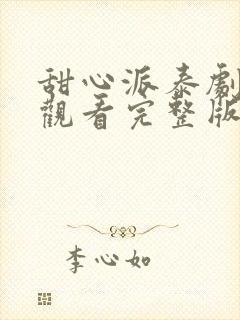 甜心派泰劇
觀看完整版
李心如